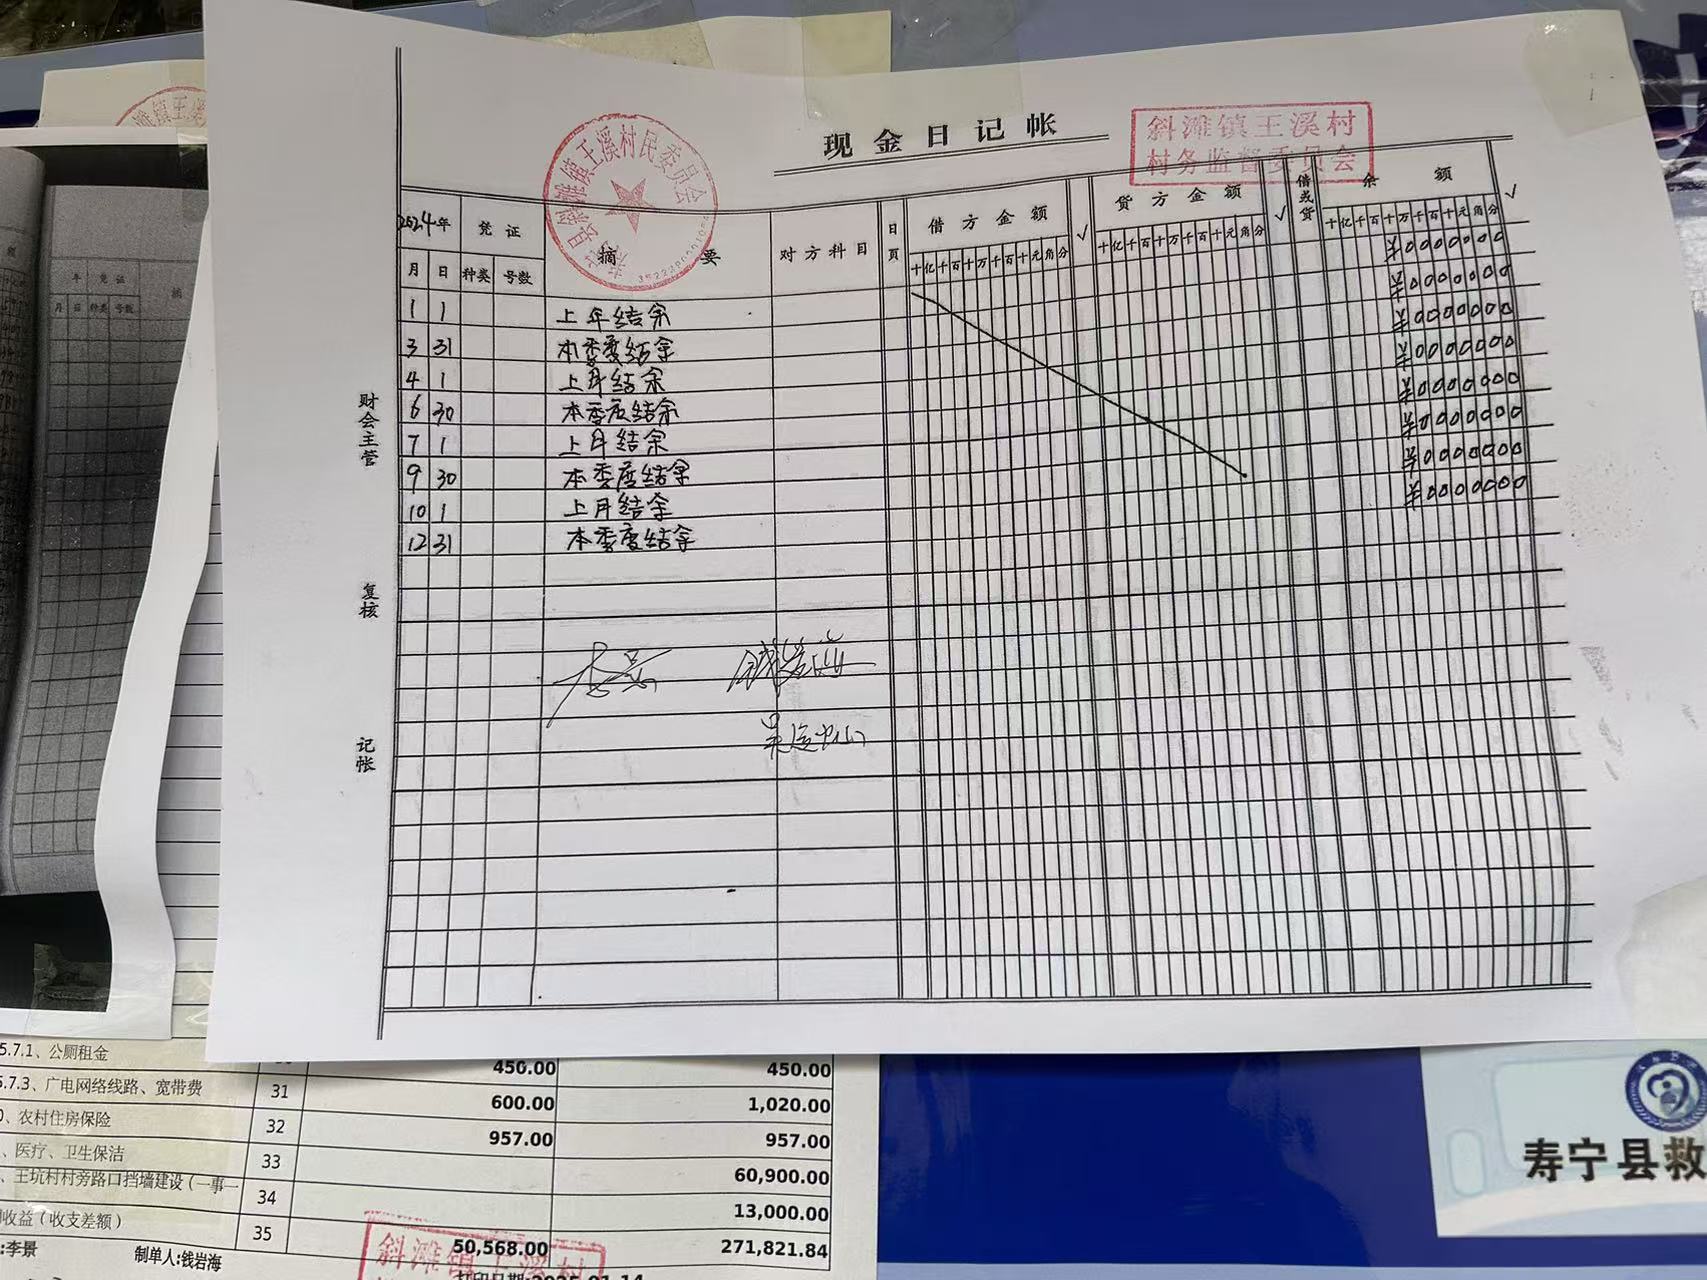 现金日记帐
斜滩镇王溪村
村务监督委员会
斜滩镇王溪村民委员会
2024年 凭证 摘要 对方科目 日页 借方金额 √ 贷方金额 √ 借或贷 余额 √
月 日 种类 号数 十亿千百十万千百十元角分 十亿千百十万千百十元角分 十亿千百十万千百十元角分
1 1 上年结余 ¥0000000
3 31 本季度结余 ¥0000000
4 1 上月结余 ¥0000000
6 30 本季度结余 ¥0000000
7 1 上月结余 ¥0000000
9 30 本季度结余 ¥0000000
10 1 上月结余 ¥0000000
12 31 本季度结余 ¥0000000
财会主管
复核
记帐
李景 钱岩海
镇王
年 凭证 摘
月 日 种类 号数
5.7.1、公厕租金 450.00 450.00
5.7.3、广电网络线路、宽带费 31 600.00 1,020.00
、农村住房保险 32 957.00 957.00
、医疗、卫生保洁 33 60,900.00
、王坑村村旁路口挡墙建设（一事一 34 13,000.00
收益（收支差额） 35 50,568.00 271,821.84
:李景 制单人:钱岩海 打印日期:2025-01-14
斜滩镇王溪村
寿宁县救